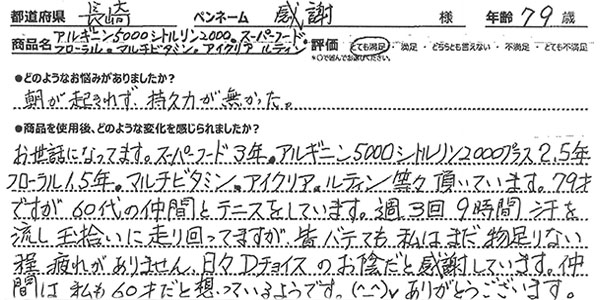 都道府県 長崎 ペンネーム 感謝 様 年齢 79 歳
商品名 アルギニン5000シトルリン2000。スーパーフード
フローラル。マルチビタミン。アイクリア ルティン
評価 とても満足 ・ 満足 ・ どちらとも言えない ・ 不満足 ・ とても不満足
*〇で囲んでお選びください。
●どのようなお悩みがありましたか?
朝が起きれず、持久力が無かった。
●商品を使用後、どのような変化を感じられましたか?
お世話になってます。スーパーフード3年。アルギニン5000シトルリン2000プラス2.5年
フローラル1.5年。マルチビタミン。アイクリア。ルティン等々頂いています。79才
ですが60代の仲間とテニスをしています。週3回9時間 汗を
流し玉拾いに走り回ってますが、皆バテても私はまだ物足りない
程疲れがありません、日々Dチョイスのお陰だと感謝しています。仲
間は私も60才だと想っているようです。(^-^)v ありがとうございます。